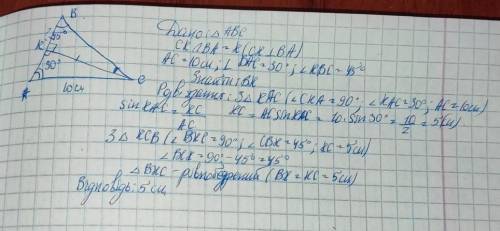 B
45°
K
30°
A
C
10см
Дано: △ ABC
CK∩BA = K (CK ⊥ BA)
AC = 10см; ∠BAC = 30°; ∠KBC = 45°
Знайти: BK
Розв'язання: З △ KAC (∠CKA = 90°; ∠KAC = 30°; AC = 10см)
sin KAC = KC/AC KC = AC sin KAC = 10 · sin 30° = 10/2 = 5(см)
З △ KCB (∠BKC = 90°; ∠CBK = 45°; KC = 5см)
∠BCK = 90° - 45° = 45°
△ BKC - рівнобедрений (BK = KC = 5см)
Відповідь: 5 см.